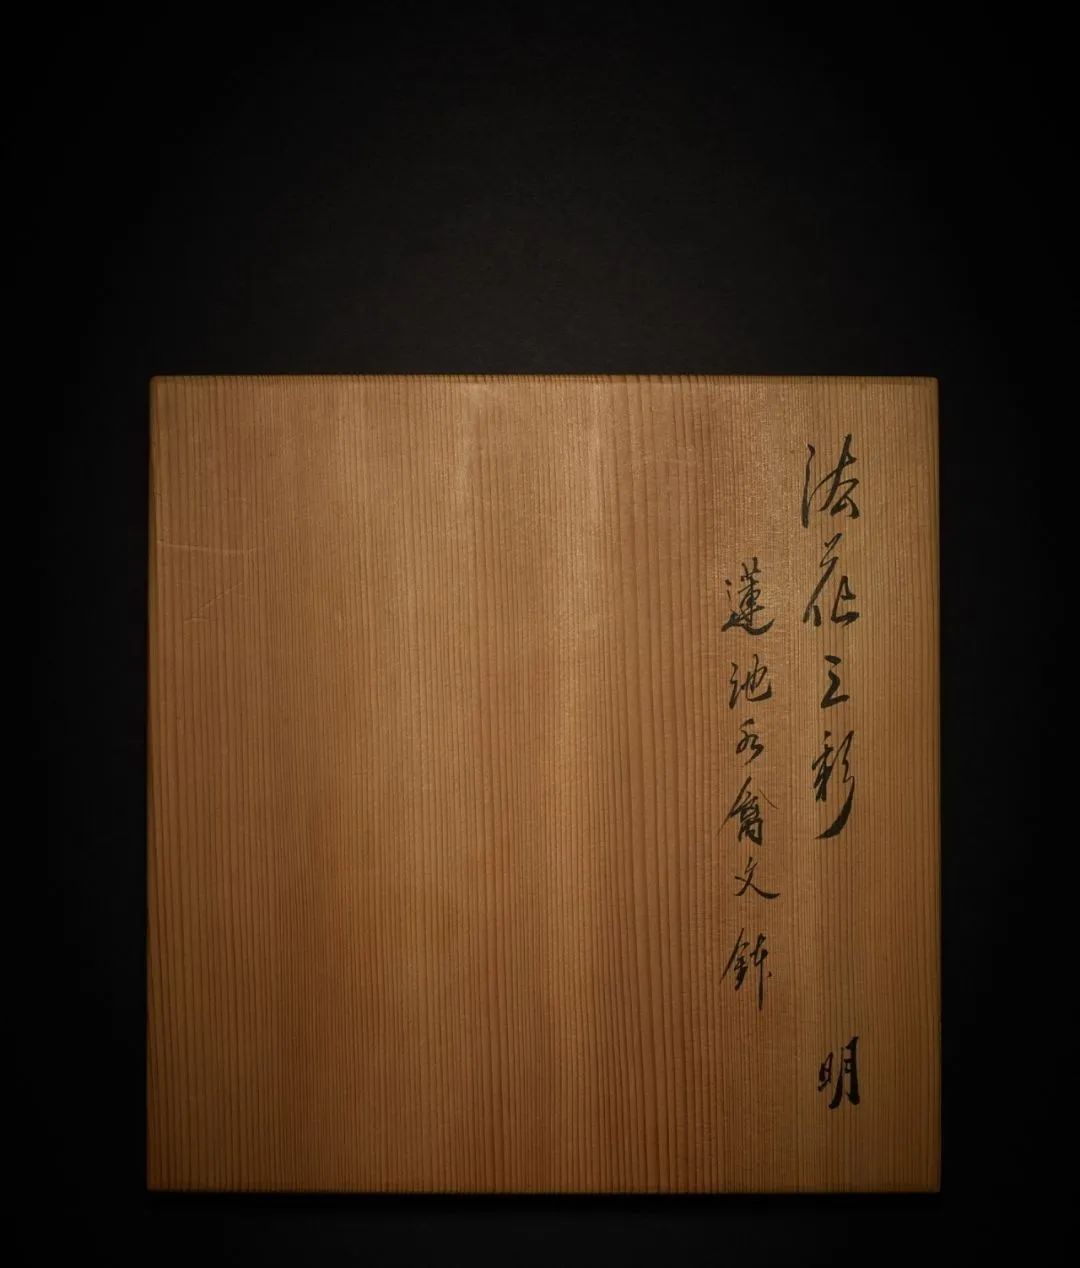 法花三彩 明
蓮池水禽文鉢